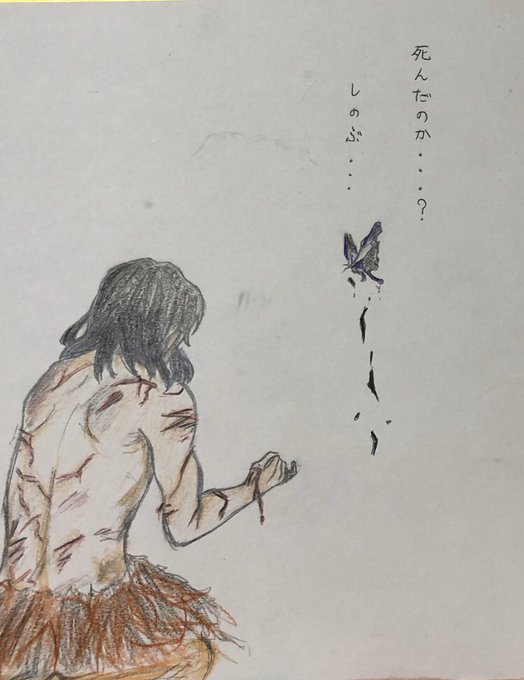 死んだのか・・・?
しのぶ・・・